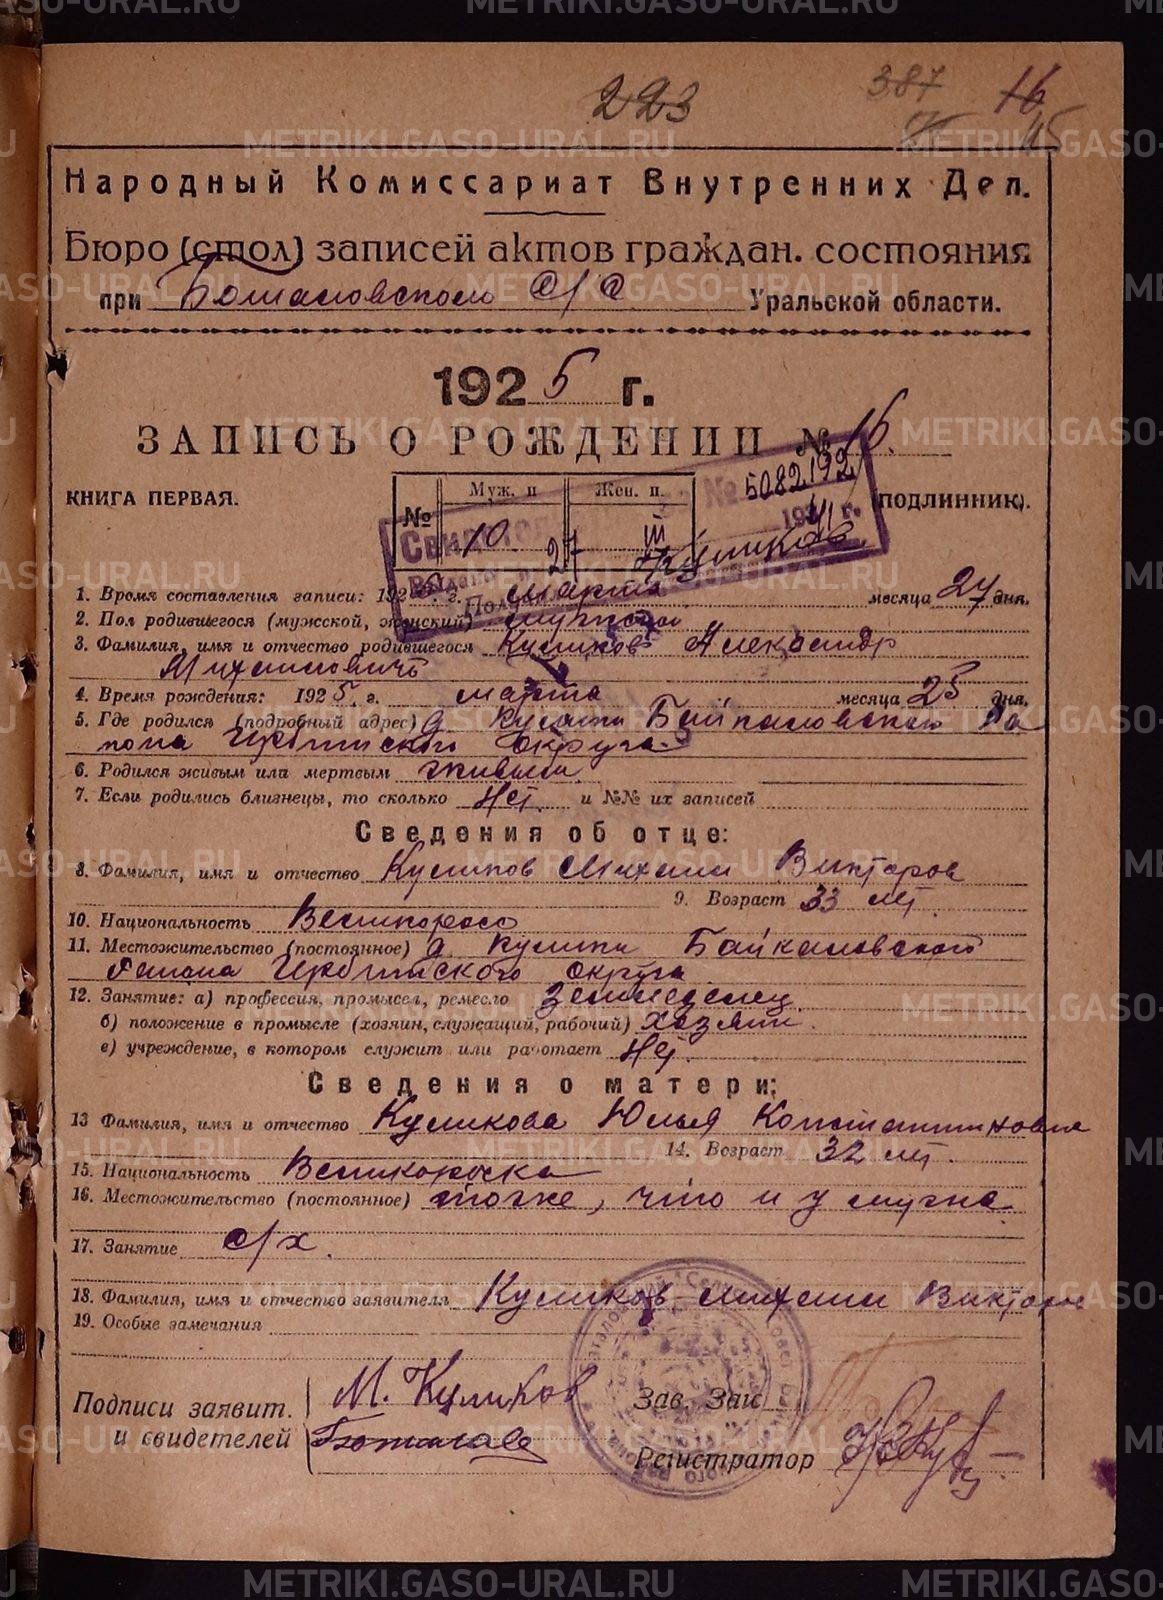 223 387 16
45
Народный Комиссариат Внутренних Дел.
Бюро (стол) записей актов граждан. состояния
при Боталовском С/С Уральской области.
1925 г.
ЗАПИСЬ О РОЖДЕНИИ № 16.
КНИГА ПЕРВАЯ. (ПОДЛИННИК).
№ Муж. п Жен. п.
10
№ 5082192
1941 г.
27 III Куликов
1. Время составления записи: 1925 г. марта месяца 27 дня.
2. Пол родившегося (мужской, женский) мужской
3. Фамилия, имя и отчество родившегося Куликов Александр
Михаилович
4. Время рождения: 1925 г. марта месяца 25 дня.
5. Где родился (подробный адрес) д Кулики Байкаловского Ра
иона Ирбитского округа
6. Родился живым или мертвым живым
7. Если родились близнецы, то сколько нет. и №№ их записей
Сведения об отце:
8. Фамилия, имя и отчество Куликов Михаил Викторов
9. Возраст 33 лет.
10. Национальность Великоросс
11. Местожительство (постоянное) д Кулики Байкаловского
Раиона Ирбитского округа
12. Занятие: а) профессия, промысел, ремесло земледелец
б) положение в промысле (хозяин, служащий, рабочий) хозяин.
в) учреждение, в котором служит или работает нет.
Сведения о матери:
13 Фамилия, имя и отчество Куликова Юлья Константиновна
14. Возраст 32 лет.
15. Национальность Великороска
16. Местожительство (постоянное) тоже, что и у мужа
17. Занятие с/х.
18. Фамилия, имя и отчество заявителя Куликов Михаил Викторов
19. Особые замечания
Подписи заявит. М. Куликов Зав. Загс
и свидетелей Регистратор
METRIKI.GASO-URAL.RU